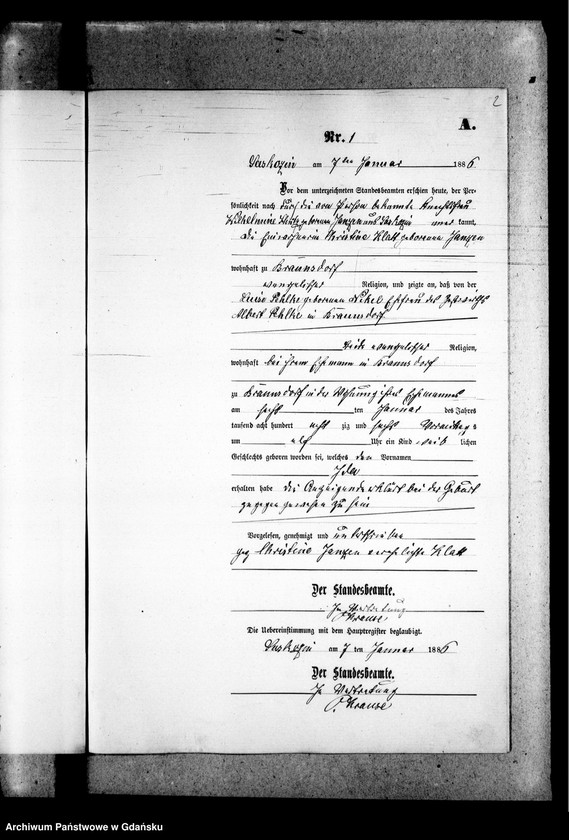 2
A.
Nr. 1
Saskozin am 7ten Januar 1886
Vor dem unterzeichneten Standesbeamten erschien heute, der Per-
sönlichkeit nach durch die von Person bekannte
Wilhelmine geborenen Janzen aus Saskozin kannt,
die Einwohnerin Christine Klatt geborenen Janzen
wohnhaft zu Braunsdorf
evangelischer Religion, und zeigte an, daß von der
Luise geborenen Nikel Ehefrau des
Albert in Braunsdorf
Beide evangelischer Religion,
wohnhaft bei ihrem Ehemann in Braunsdorf
zu Braunsdorf in der Wohnung ihres Ehemannes
am sechsten Januar des Jahres
tausend acht hundert achtzig und sechs Vormittags
um elf Uhr ein Kind weiblichen
Geschlechts geboren worden sei, welches den Vornamen
Ida
erhalten habe die Anzeigende erklärt bei der Geburt
zugegen gewesen zu sein
Vorgelesen, genehmigt und unterschrieben
gez Christine Janzen verehelichte Klatt
Der Standesbeamte.
In Vertretung
Krause
Die Uebereinstimmung mit dem Hauptregister beglaubigt.
Saskozin am 7 ten Januar 1886
Der Standesbeamte.
In Vertretung
Krause
Archiwum Państwowe w Gdańsku